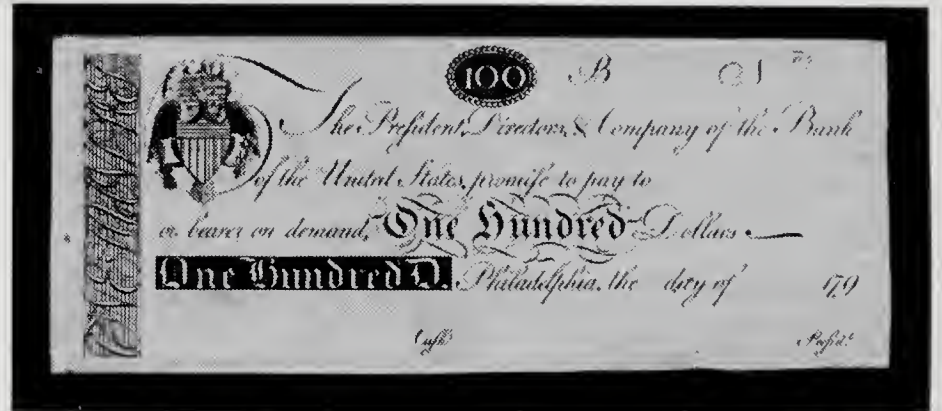 100 B
The President, Directors, & Company of the Bank
of the United States, promise to pay to
or bearer on demand, One Hundred Dollars
One Hundred D. Philadelphia, the day of 179
Cash.r Presid.t